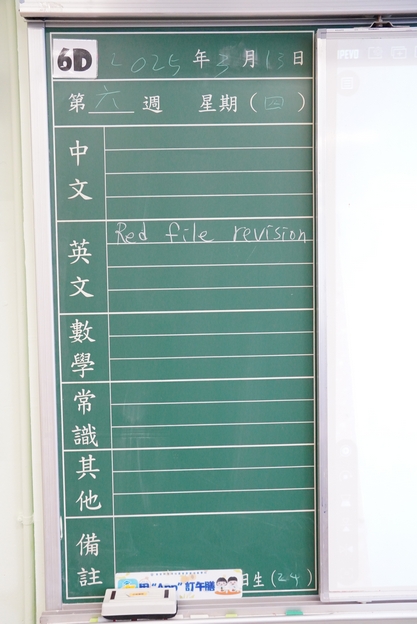 6D 2025 年 3 月 13 日
第 六 週 星期 ( 四 )
中文
英文 Red file revision
數學
常識
其他
備註
用"App"訂午膳
日生 (24)